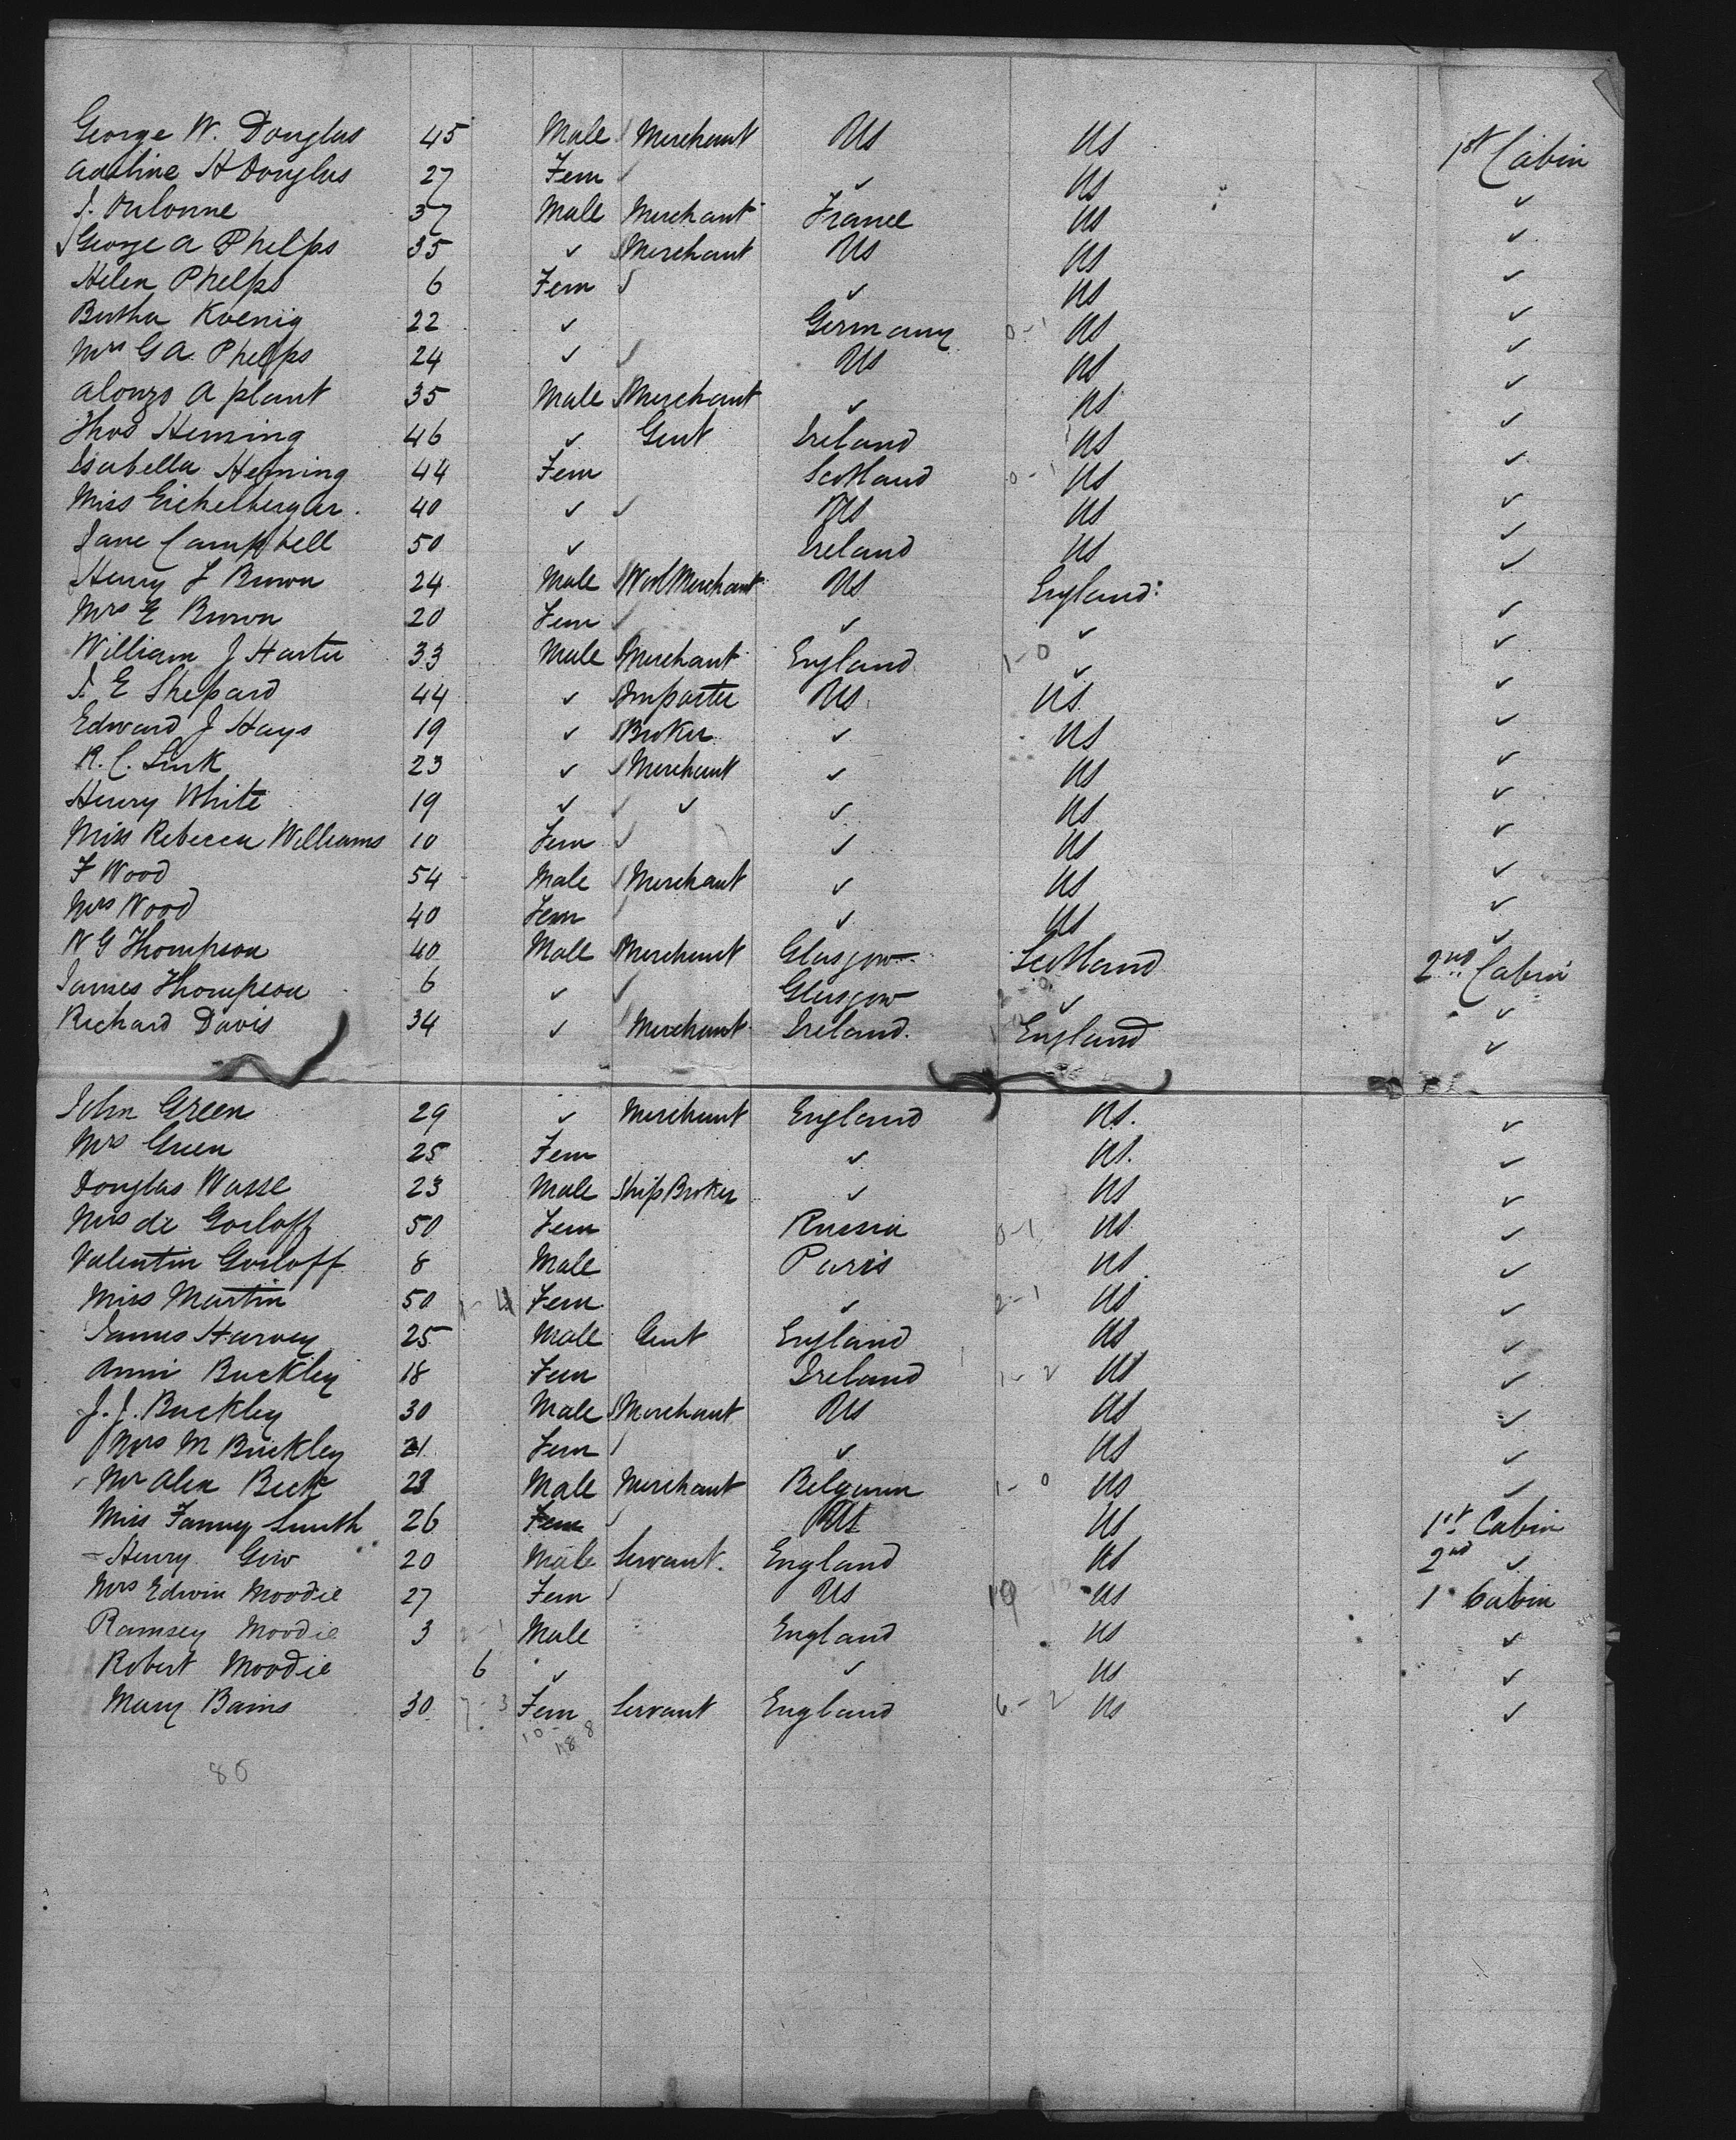 George W. Douglas 45 Male Merchant Us Us 1st Cabin
Adaline H Douglas 27 Fem ✓ Us ✓
37 Male Merchant France Us ✓
George A Phelps 35 ✓ Merchant Us Us ✓
Helen Phelps 6 Fem ✓ Us ✓
Bertha Koenig 22 ✓ Germany 0-1 Us ✓
Mrs G A Phelps 24 ✓ Us Us ✓
Alonzo A Plant 35 Male Merchant ✓ Us ✓
Thos Heming 46 ✓ Gent Ireland Us ✓
Isabella Heming 44 Fem Scotland 0-1 Us ✓
Miss Eichelberger. 40 ✓ Us Us ✓
Jane Campbell 50 ✓ Ireland Us ✓
Henry J Brown 24 Male Wool Merchant Us England ✓
Mrs E Brown 20 Fem ✓ ✓ ✓
William J Harter 33 Male Merchant England 1-0 ✓ ✓
E Shepard 44 ✓ Importer Us Us ✓
Edward J Hays 19 ✓ Broker ✓ Us ✓
R. C. Link 23 ✓ Merchant ✓ Us ✓
Henry White 19 ✓ ✓ ✓ Us ✓
Miss Rebecca Williams 10 Fem ✓ Us ✓
F Wood 54 Male Merchant ✓ Us ✓
Mrs Wood 40 Fem ✓ Us ✓
W G Thompson 40 Male Merchant Glasgow Scotland 2nd Cabin
James Thompson 6 ✓ Glasgow ✓ ✓
Richard Davis 34 ✓ Merchant Ireland. England ✓
John Green 29 ✓ Merchant England Us. ✓
Mrs Green 25 Fem ✓ Us. ✓
Douglas Wasse 23 Male Ship Broker ✓ Us ✓
Mrs de Gorloff 50 Fem Russia 0-1 Us ✓
Valentin Gorloff 8 Male Paris Us ✓
Miss Martin 50 Fem ✓ 2-1 Us ✓
James Harvey 25 Male Gent England Us ✓
Annie Buckley 18 Fem Ireland 1-2 Us ✓
J. J. Buckley 30 Male Merchant Us Us ✓
Mrs M Buckley 21 Fem ✓ Us ✓
Mr Alex Beck 23 Male Merchant Belgium 1-0 Us ✓
Miss Fanny Smith 26 Fem Us Us 1st Cabin
Henry 20 Male Servant. England Us 2nd ✓
Mrs Edwin Moodie 27 Fem Us 19 Us 1 Cabin
Ramsey Moodie 3 Male England Us ✓
Robert Moodie 6 ✓ ✓ Us ✓
Mary Bains 30 7-3 Fem Servant England 6-2 Us ✓
80